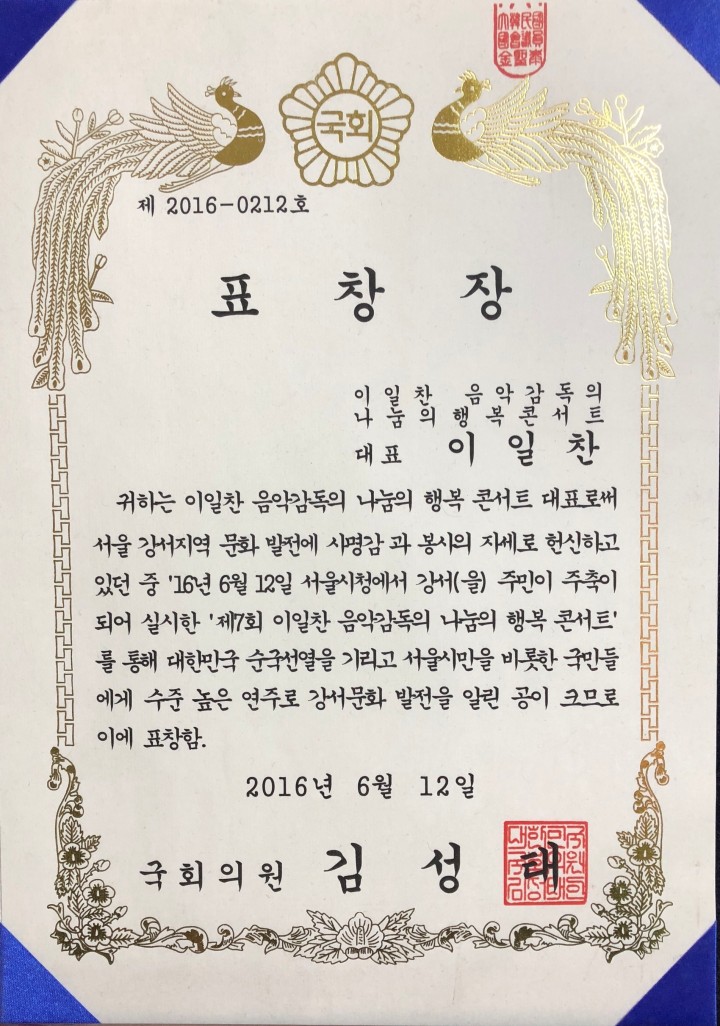 국회
제 2016-0212호
표 창 장
이일찬 음악감독의
나눔의 행복콘서트
대표 이 일 찬
귀하는 이일찬 음악감독의 나눔의 행복 콘서트 대표로써
서울 강서지역 문화 발전에 사명감 과 봉사의 자세로 헌신하고
있던 중 '16년 6월 12일 서울시청에서 강서(을) 주민이 주축이
되어 실시한 '제7회 이일찬 음악감독의 나눔의 행복 콘서트'
를 통해 대한민국 순국선열을 기리고 서울시만을 비롯한 국민들
에게 수준 높은 연주로 강서문화 발전을 알린 공이 크므로
이에 표창함.
2016년 6월 12일
국회의원 김 성 태